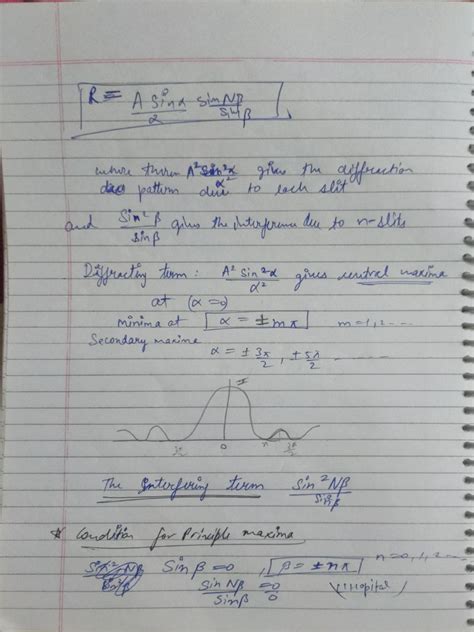 R = A sinα/α sinNβ/sinβ
where therm A² sin²α/α² gives the diffraction
pattern due to each slit
and Sin²β/sinβ gives the interference due to n-slits
Diffracting term : A² Sin²α/α² gives central maxima
at (α=0)
minima at α = ± mπ m=1,2 ----
Secondary maxima
α = ± 3π/2 , ± 5π/2 -----
I
0 π
The interfering term Sin²Nβ/Sin²β
* Condition for Principle maxima
Sinβ=0 , β = ± nπ n=0,1,2---
Sin Nβ/Sinβ = 0/0 (L'Hopital)